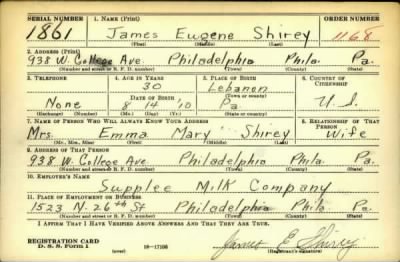 SERIAL NUMBER 1. NAME (Print) ORDER NUMBER
1861 James Eugene Shirey 1168
(First) (Middle) (Last)
2. ADDRESS (Print)
938 W. College Ave Philadelphia Phila. Pa.
(Number and street or R. F. D. number) (Town) (County) (State)
3. TELEPHONE 4. AGE IN YEARS 5. PLACE OF BIRTH 6. COUNTRY OF CITIZENSHIP
30 Lebanon
DATE OF BIRTH (Town or county)
None 8 14 10 Pa U.S.
(Exchange) (No.) (Mo.) (Day) (Yr.) (State or country)
7. NAME OF PERSON WHO WILL ALWAYS KNOW YOUR ADDRESS 8. RELATIONSHIP OF THAT PERSON
Mrs. Emma Mary Shirey Wife
(Mr., Mrs., Miss) (First) (Middle) (Last)
9. ADDRESS OF THAT PERSON
938 W. College Ave Philadelphia Phila. Pa.
(Number and street or R. F. D. number) (Town) (County) (State)
10. EMPLOYER'S NAME
Supplee Milk Company
11. PLACE OF EMPLOYMENT OR BUSINESS
1523 N. 26th St Philadelphia Phila Pa.
(Number and street or R. F. D. number) (Town) (County) (State)
I AFFIRM THAT I HAVE VERIFIED ABOVE ANSWERS AND THAT THEY ARE TRUE.
REGISTRATION CARD
D. S. S. Form 1 (over) 16—17105 James E Shirey
(Registrant's signature)